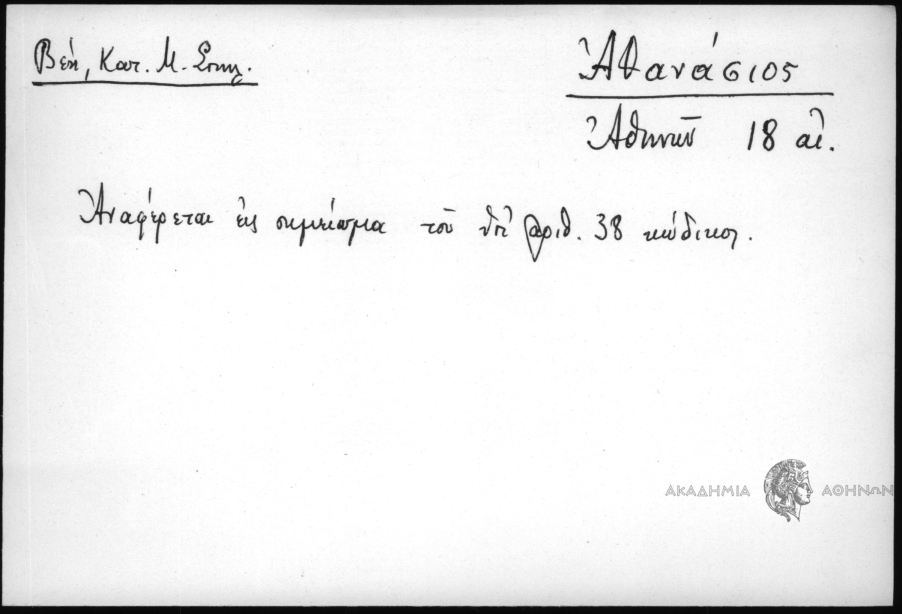 Βέη, Κατ. Μ. Σπηλ.
Ἀθανάσιος
Ἀθηνῶν 18 αἰ.
Ἀναφέρεται εἰς σημείωμα τοῦ ὑπ' ἀριθ. 38 κώδικος.
ΑΚΑΔΗΜΙΑ ΑΘΗΝΩΝ